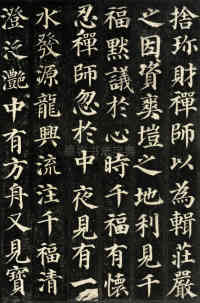 捨珎財禪師以為輯莊嚴
之因資爽塏之地利見千
福默議於心時千福有懷
忍禪師忽於中夜見有一
水發源龍興流注千福清
澄泛灩中有方舟又見寶